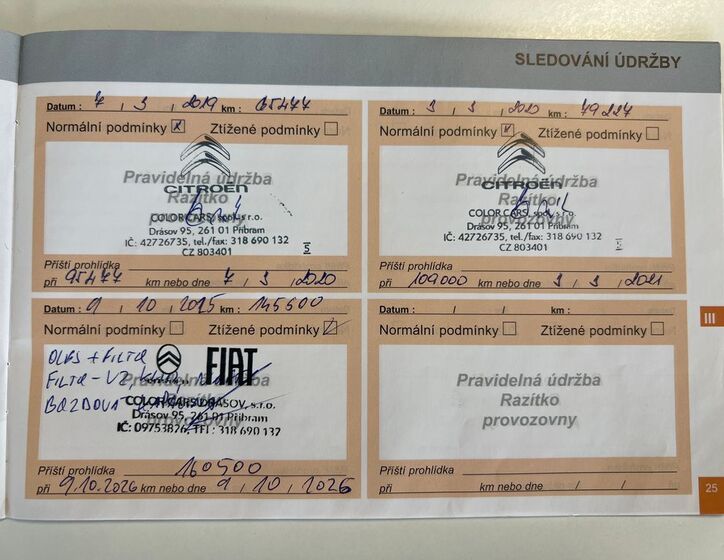 SLEDOVÁNÍ ÚDRŽBY
Datum : 7 / 3 / 2019 km : 65477
Normální podmínky Ztížené podmínky
Pravidelná údržba
CITROËN
Razítko
provozovny
COLOR CARS, spol. s r.o.
Drásov 95, 261 01 Příbram
IČ: 42726735, tel./fax: 318 690 132
CZ 803401
Příští prohlídka
při 95477 km nebo dne 7 / 3 / 2020
Datum : 3 / 3 / 2020 km : 79227
Normální podmínky Ztížené podmínky
Pravidelná údržba
CITROËN
Razítko
provozovny
COLOR CARS, spol. s r.o.
Drásov 95, 261 01 Příbram
IČ: 42726735, tel./fax: 318 690 132
CZ 803401
Příští prohlídka
při 109000 km nebo dne 3 / 3 / 2021
Datum : 9 / 10 / 2025 km : 145500
Normální podmínky Ztížené podmínky
OLEJ + FILTR
FIAT
FILTR - VZ
Pravidelná údržba
Razítko
provozovny
COLOR CARS DRÁSOV, s.r.o.
Drásov 95, 261 01 Příbram
IČ: 09753826, TEL: 318 690 132
Příští prohlídka 160500
při 9.10.2026 km nebo dne 9 / 10 / 2026
Datum : / / km :
Normální podmínky Ztížené podmínky
Pravidelná údržba
Razítko
provozovny
Příští prohlídka
při km nebo dne / /
III
25